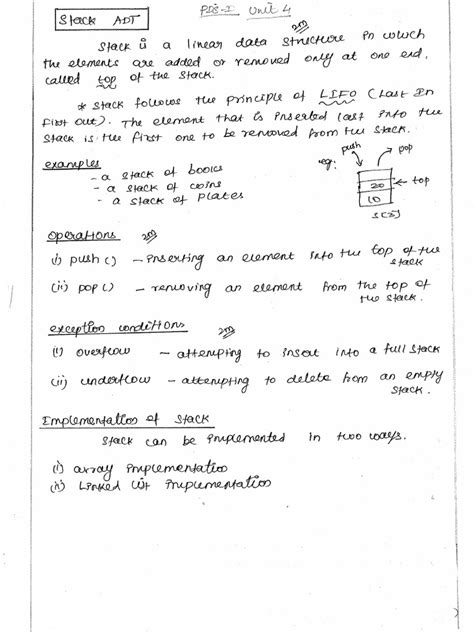 PDS-I Unit 4
Stack ADT
2m
Stack is a linear data structure in which
the elements are added or removed only at one end,
called top of the stack.
* Stack follows the principle of LIFO (Last In
First Out). The element that is inserted last into the
stack is the first one to be removed from the stack.
examples
- a stack of books
- a stack of coins
- a stack of plates
eg:
push
pop
20 ← top
10
Operations 2m
(i) push () - inserting an element into the top of the
stack
(ii) pop () - removing an element from the top of
the stack.
exception conditions 2m
(i) overflow - attempting to insert into a full stack
(ii) underflow - attempting to delete from an empty
stack.
Implementation of Stack
Stack can be implemented in two ways.
(i) array implementation
(ii) Linked list implementation